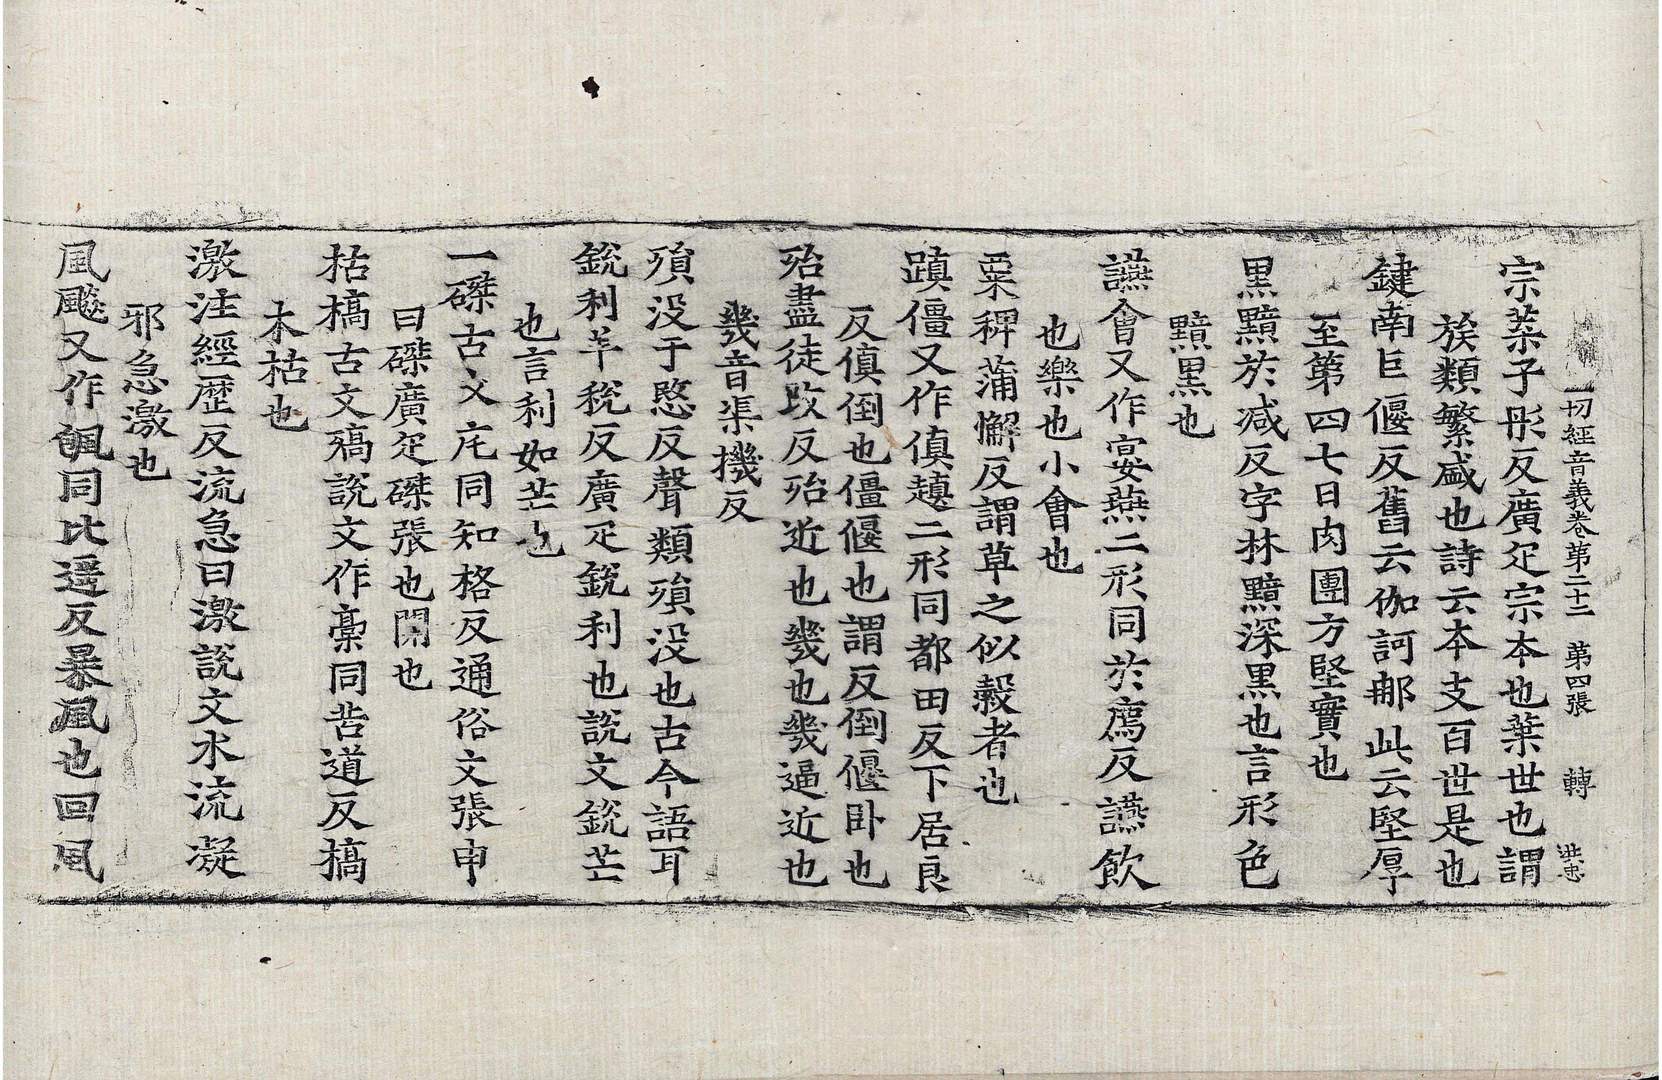 一切經音義卷第二十二 第四張 轉 洪忠
宗葉子彤反廣疋宗本也葉世也謂
族類繁盛也詩云本支百世是也
鍵南巨偃反舊云伽訶那此云堅厚
至第四七日肉團方堅實也
黑黯於減反字林黯深黑也言形色
黯黑也
讌會又作宴燕二形同於薦反讌飲
也樂也小會也
粟稗蒲懈反謂草之似穀者也
蹎僵又作傎𧽍二形同都田反下居良
反傎倒也僵偃也謂反倒偃卧也
殆盡徒改反殆近也幾也幾逼近也
幾音渠機反
殞没于愍反聲類殞没也古今語耳
銳利羊稅反廣疋銳利也說文銳芒
也言利如芒也
一磔古文庀同知格反通俗文張申
曰磔廣疋磔張也開也
枯槁古文殦說文作稾同苦道反槁
木枯也
激注經歷反流急曰激說文水流凝
邪急激也
風飈又作飇同比遥反暴風也回風